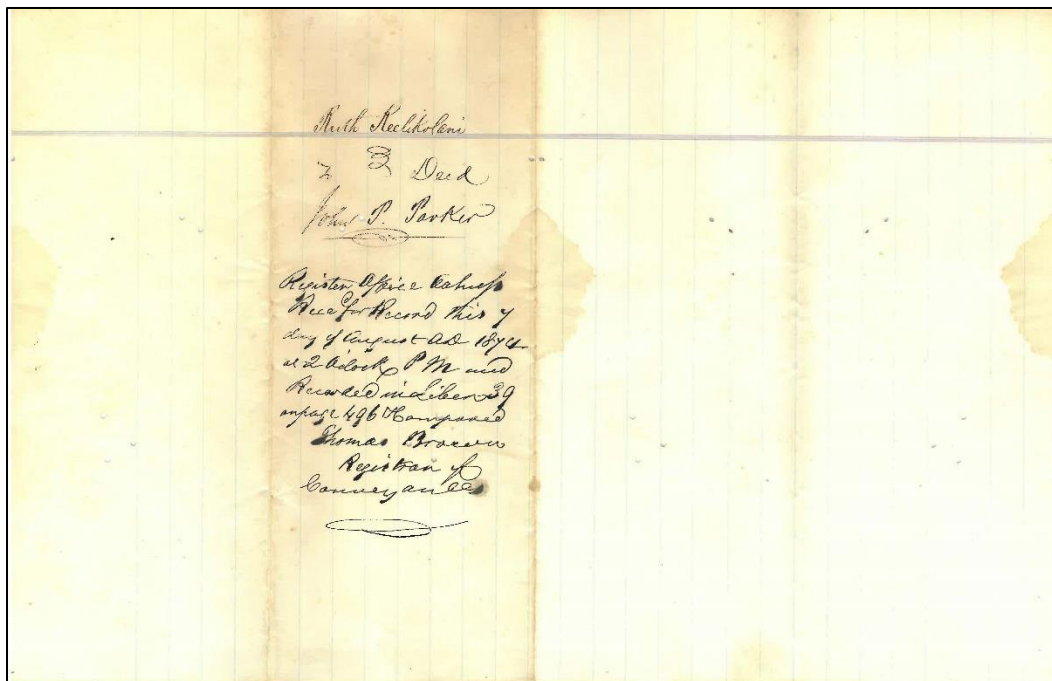 Ruth Keelikolani
to } Deed
John P. Parker
Register Office Oahu ss
Recd for Record this 7
day of August AD 1874
at 2 Oclock P M and
Recorded in Liber 39
on page 496 & Compared
Thomas Brown
Registrar of
Conveyances